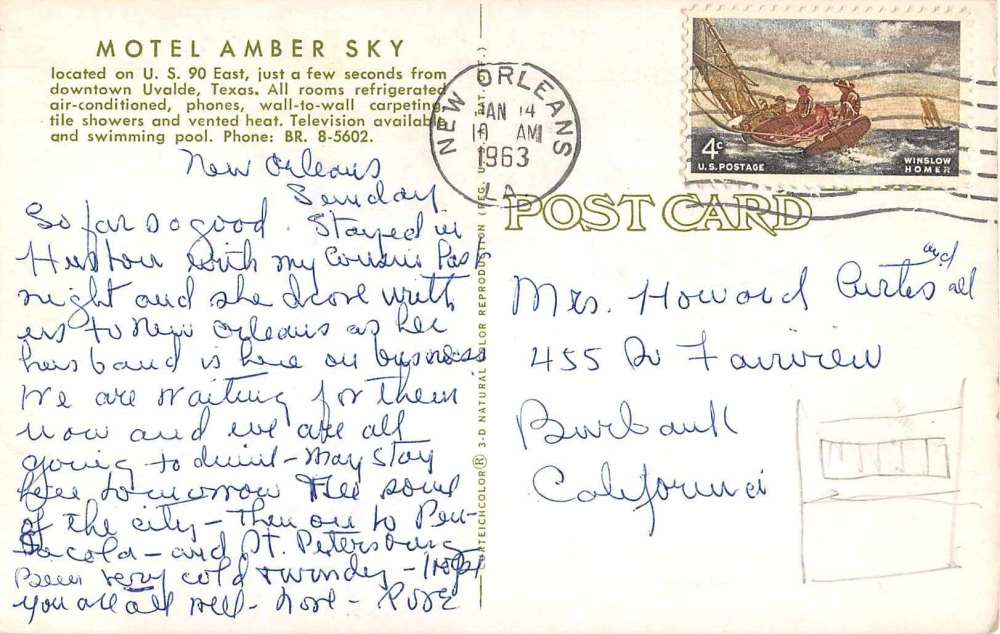 MOTEL AMBER SKY
located on U. S. 90 East, just a few seconds from
downtown Uvalde, Texas. All rooms refrigerated
air-conditioned, phones, wall-to-wall carpeting,
tile showers and vented heat. Television available
and swimming pool. Phone: BR. 8-5602.
New Orleans
Sunday
So far so good. Stayed in
Huston with my Cousin last
night and she drove with
us to New Orleans as her
husband is here on business
We are waiting for them
now and we are all
going to dinner - May stay
here tomorrow see some
of the city - Then on to Pen-
sacola - and St. Petersburg
Been very cold & windy - Hope
you are all well - Love -
CURTEICHCOLOR® 3-D NATURAL COLOR REPRODUCTION (REG. U.S. PAT. OFF.)
NEW ORLEANS
JAN 14
10 AM
1963
LA
4c
U.S. POSTAGE
WINSLOW
HOMER
POST CARD
Mrs. Howard Curtis and all
455 Fairview
Burbank
California